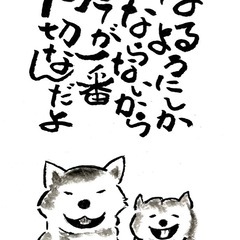 なるようにしか
ならないから
今が一番
大切なんだよ